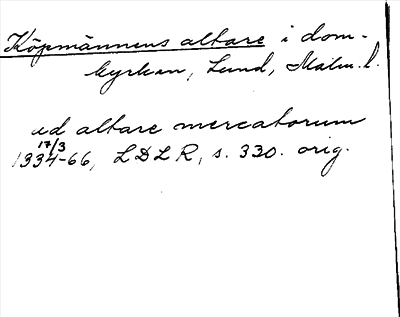 Köpmännens altare i dom-
kyrkan, Lund, Malm. l.
ad altare mercatorum
17/3
1334-66, LDLR, s. 330. orig.